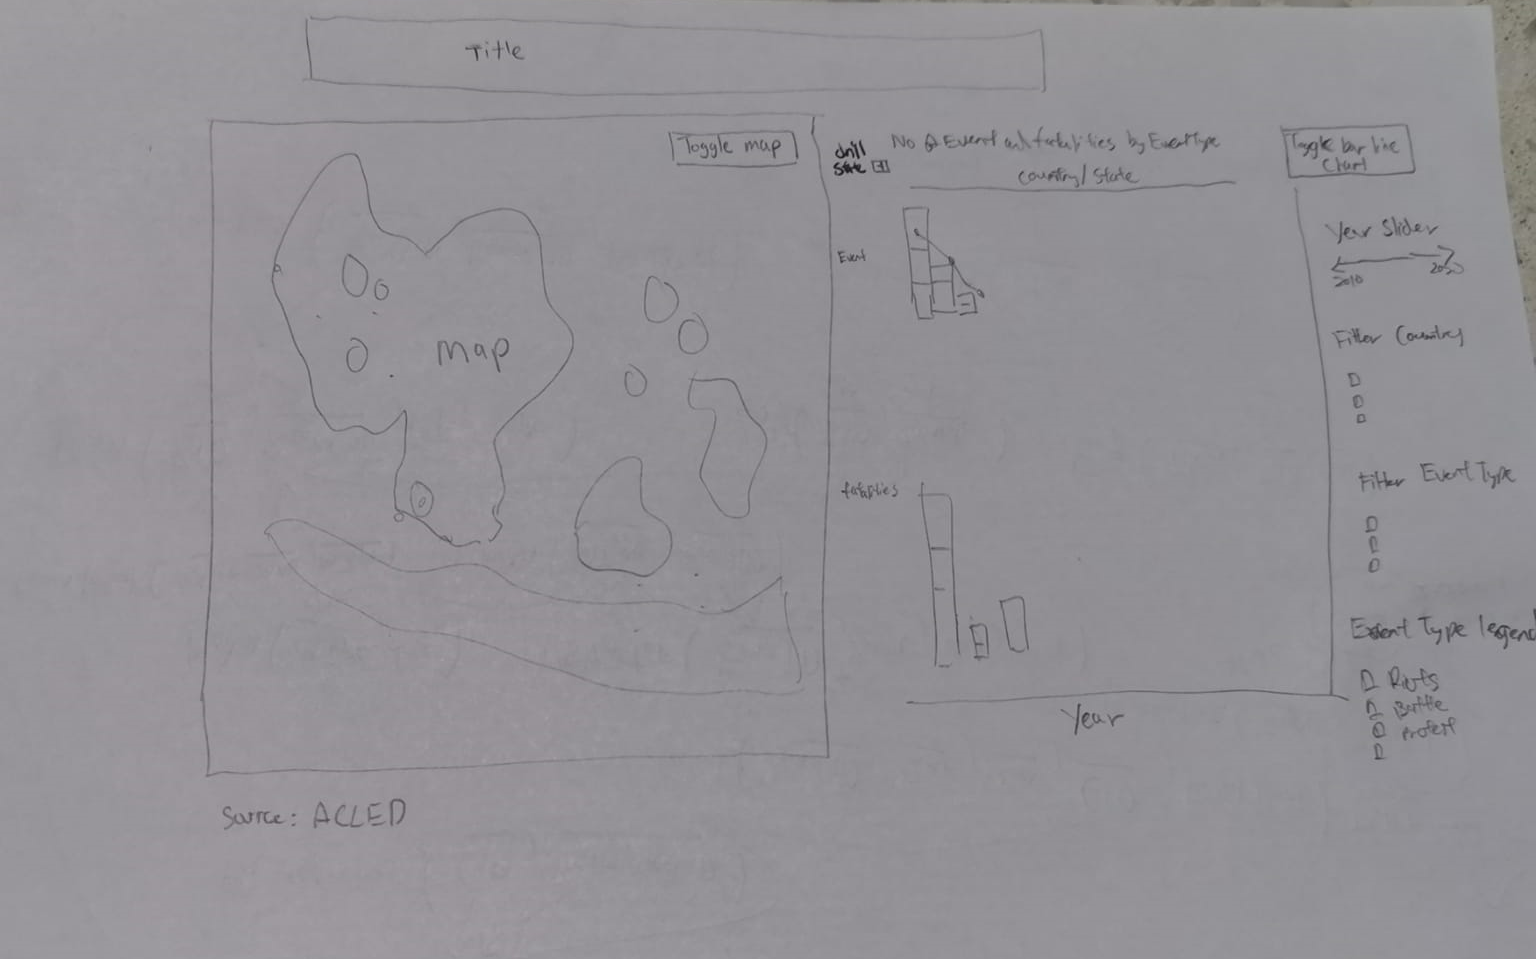 Title
Toggle map
map
Source: ACLED
drill
state +
No of Event and fatalities by EventType
country/ state
Event
fatalities
Year
Toggle bar line
Chart
Year Slider
2010
Filter Country
Filter Event Type
Event Type legend
Riots
Battle
Protest